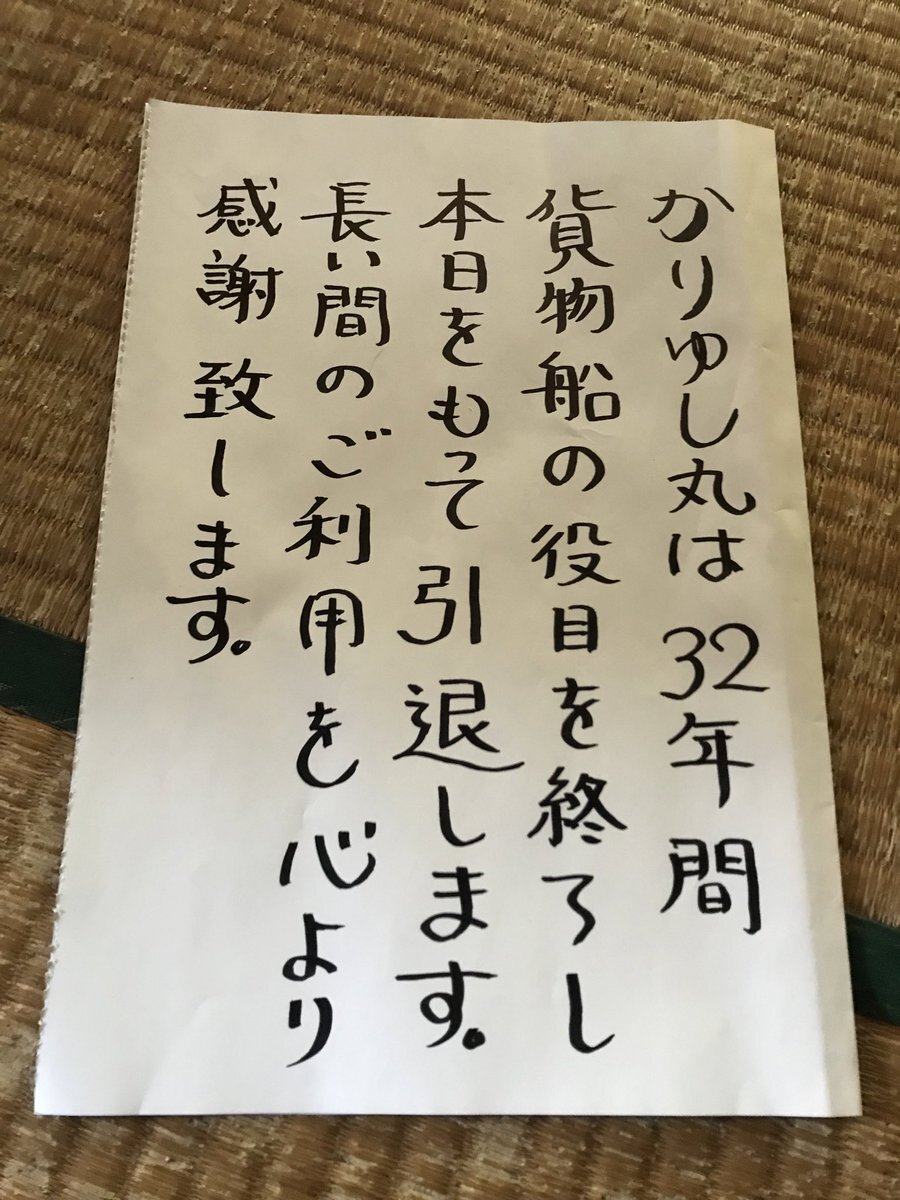 かりゆし丸は32年間
貨物船の役目を終了し
本日をもって引退します。
長い間のご利用を心より
感謝致します。